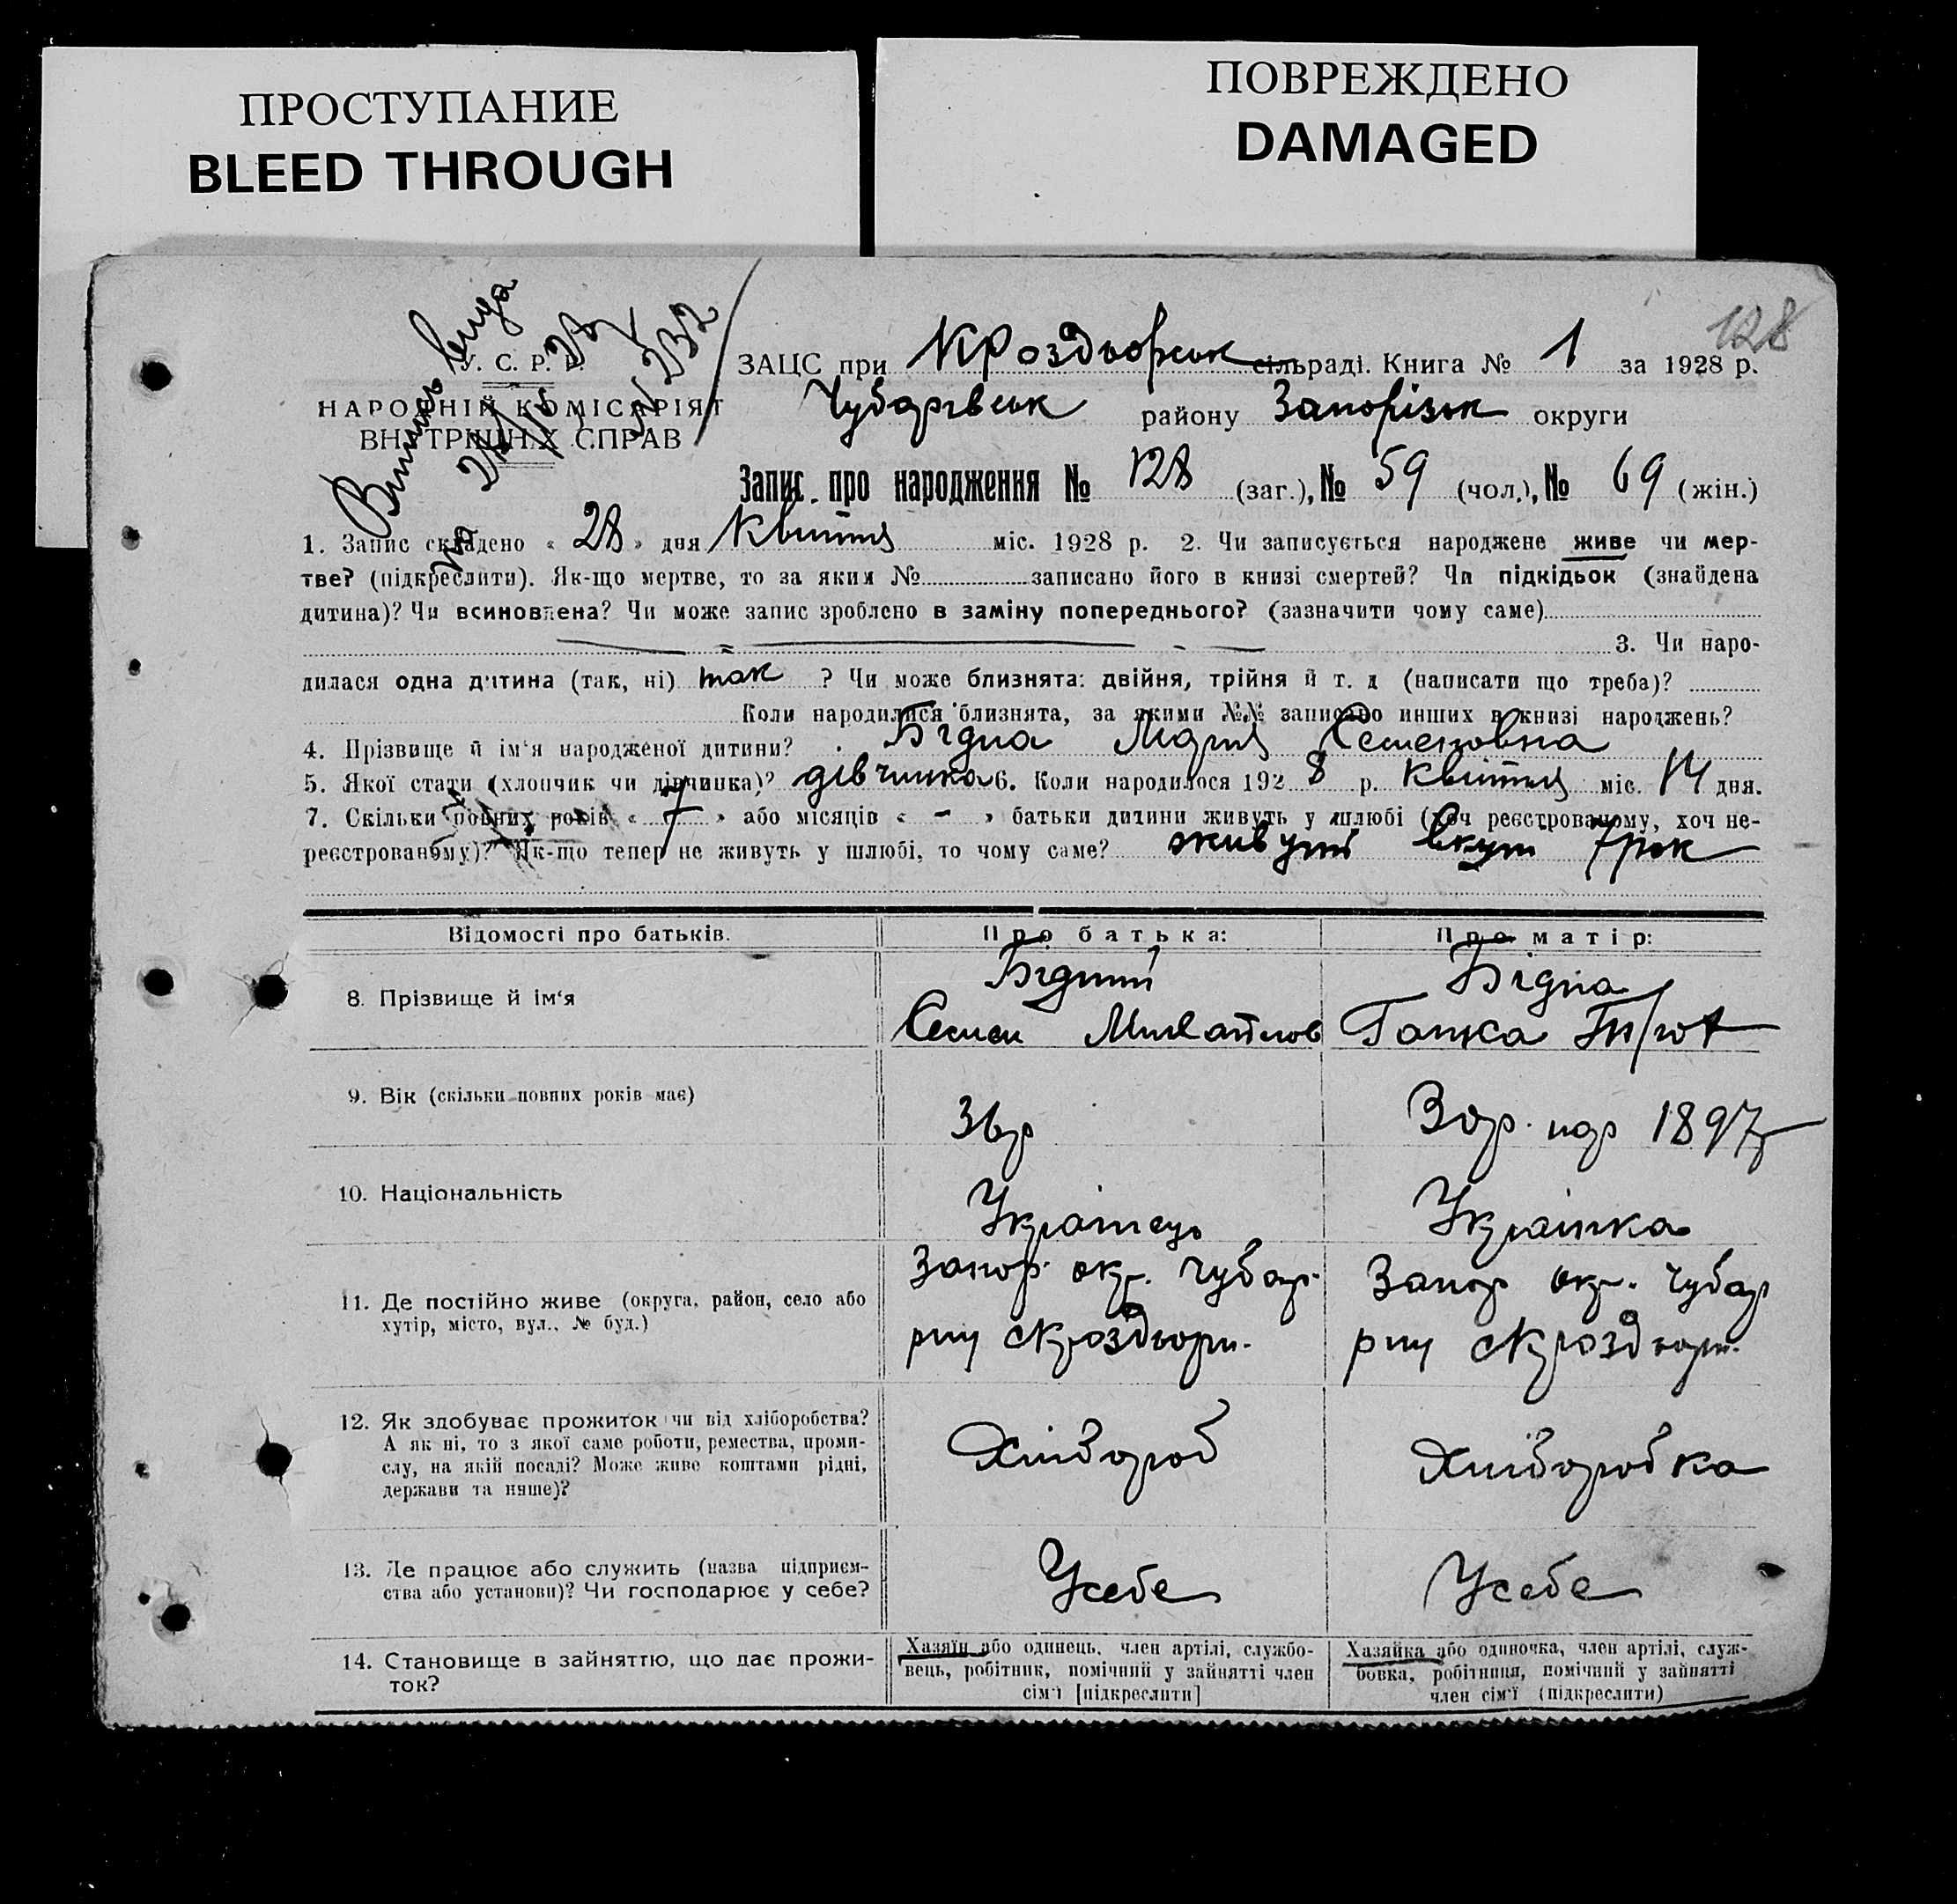 ПРОСТУПАНИЕ
BLEED THROUGH
ПОВРЕЖДЕНО
DAMAGED
128
У. С. Р. Р.
НАРОДНІЙ КОМІСАРІЯТ
ВНУТРІШНІХ СПРАВ
ЗАЦС при Кроздворськ сільраді. Книга № 1 за 1928 р.
Чубарівськ району Запорізьк округи
Запис про народження № 128 (заг.), № 59 (чол.), № 69 (жін.)
1. Запис складено « 28 » дня Квітня міс. 1928 р. 2. Чи записується народжене живе чи мер-
тве? (підкреслити). Як-що мертве, то за яким № записано його в книзі смертей? Чи підкідьок (знайдена
дитина)? Чи всиновлена? Чи може запис зроблено в заміну попереднього? (зазначити чому саме)
3. Чи наро-
дилася одна дитина (так, ні) так ? Чи може близнята: двійня, трійня й т. д (написати що треба)?
Коли народилися близнята, за якими №№ записано инших в книзі народжень?
4. Прізвище й ім'я народженої дитини? Бідна Марія Семеновна
5. Якої стати (хлопчик чи дівчинка)? дівчинка 6. Коли народилося 1928 р. Квітня міс. 14 дня.
7. Скільки повних років « 7 » або місяців « - » батьки дитини живуть у шлюбі (хоч реєстрованому, хоч не-
реєстрованому)? Як-що тепер не живуть у шлюбі, то чому саме? живуть вкуп 7 рок
Відомості про батьків.
Про батька:
Про матір:
8. Прізвище й ім'я
Бідний
Семен Михайлов
Бідна
Ганка
9. Вік (скільки повних років має)
36р
30р. 1897р
10. Національність
Українець
Українка
11. Де постійно живе (округа, район, село або
хутір, місто, вул., № буд.)
Запор. окр. Чубар.
рну с Кроздворн.
Запор окр. Чубар
рну с Кроздворн.
12. Як здобуває прожиток чи від хліборобства?
А як ні, то з якої саме роботи, ремества, проми-
слу, на якій посаді? Може живе коштами рідні,
держави та инше)?
Хлібороб
Хліборобка
13. Де працює або служить (назва підприєм-
ства або установи)? Чи господарює у себе?
Усебе
Усебе
14. Становище в зайняттю, що дає прожи-
ток?
Хазяїн або одинець, член артілі, службо-
вець, робітник, помічний у зайнятті член
сім'ї [підкреслити]
Хазяйка або одиночка, член артілі, служ-
бовка, робітниця, помічний у зайнятті
член сім'ї (підкреслити)